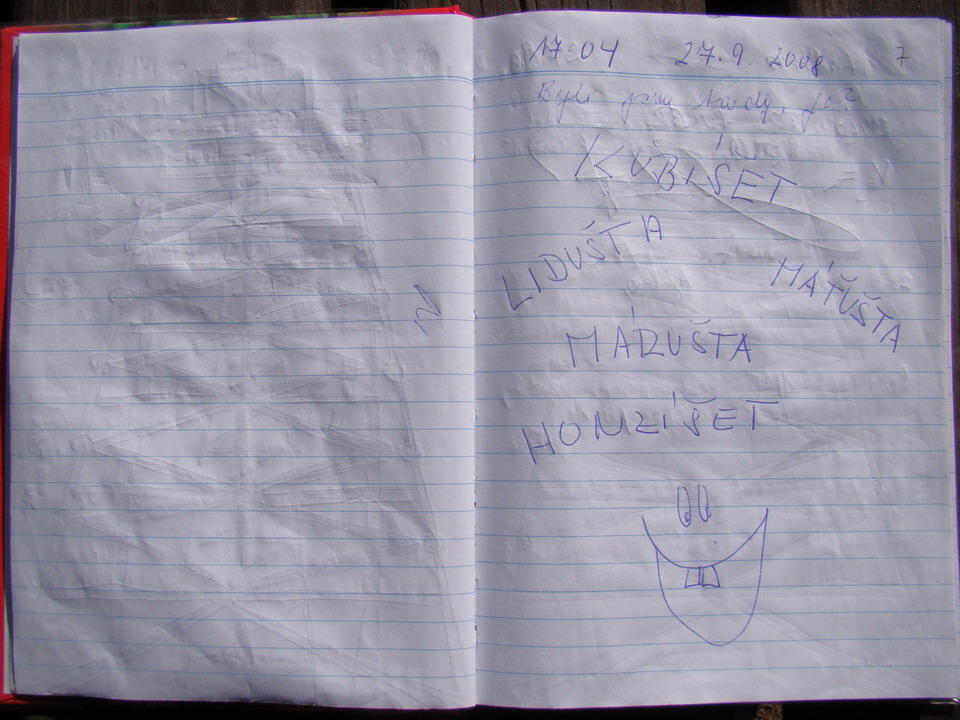 17:04 27.9. 2008 7
Byli jsme tudy, jo?
KUBÍŠET
LIDUŠTA
MÁŤUŠTA
MÁRUŠTA
HONZÍŠET